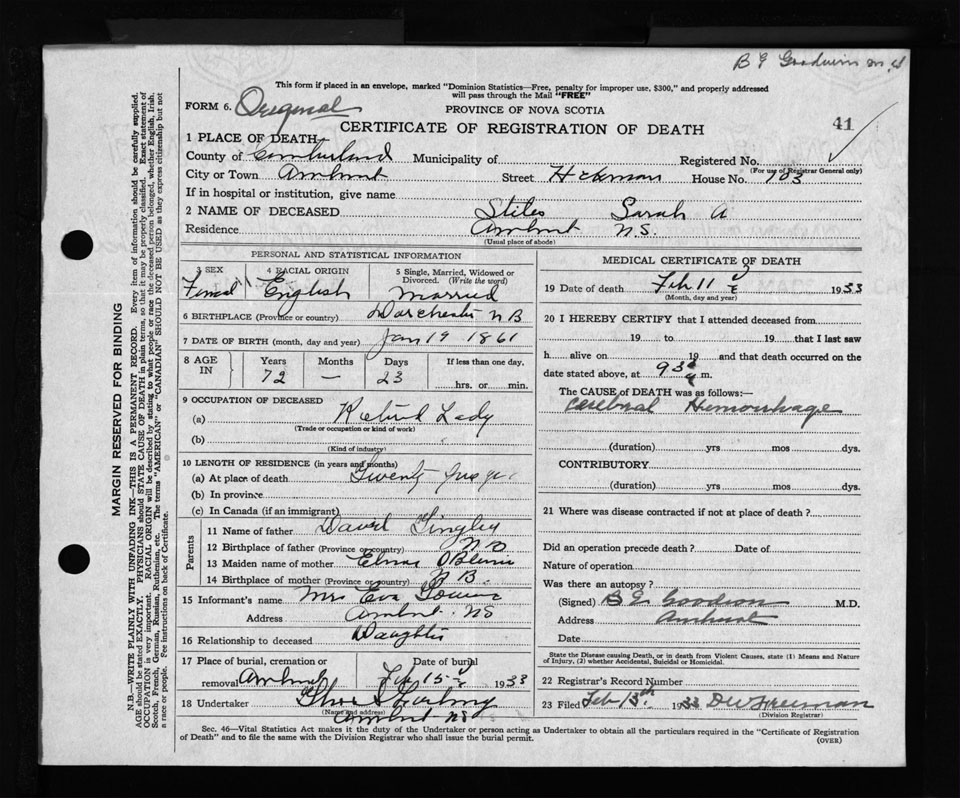 B E Goodwin M.D
This form if placed in an envelope, marked "Dominion Statistics—Free, penalty for improper use, $300," and properly addressed
will pass through the Mail "FREE"
FORM 6. Original PROVINCE OF NOVA SCOTIA
CERTIFICATE OF REGISTRATION OF DEATH 41
1 PLACE OF DEATH—
County of Cumberland Municipality of Registered No.
(For use of Registrar General only)
City or Town Amherst Street Hickman House No. 103
If in hospital or institution, give name
2 NAME OF DECEASED Stiles Sarah A
Residence Amherst N.S.
(Usual place of abode)
PERSONAL AND STATISTICAL INFORMATION
3 SEX 4 RACIAL ORIGIN 5 Single, Married, Widowed or
Divorced. (Write the word)
Female English Married
6 BIRTHPLACE (Province or country) Dorchester N B
7 DATE OF BIRTH (month, day and year) Jan 19 1861
8 AGE IN Years Months Days If less than one day.
72 — 23 hrs. or min.
9 OCCUPATION OF DECEASED
(a) Retired Lady
(Trade or occupation or kind of work)
(b)
(Kind of industry)
10 LENGTH OF RESIDENCE (in years and months)
(a) At place of death Twenty
(b) In province
(c) In Canada (if an immigrant)
Parents
11 Name of father David Tingley
12 Birthplace of father (Province or country)
13 Maiden name of mother
14 Birthplace of mother (Province or country)
15 Informant's name Mrs Eva
Address Amherst NS
16 Relationship to deceased Daughter
17 Place of burial, cremation or Date of burial
removal Amherst Feb 15 1933
18 Undertaker
(Name and address)
Amherst NS
MEDICAL CERTIFICATE OF DEATH
19 Date of death Feb 11 1933
(Month, day and year)
20 I HEREBY CERTIFY that I attended deceased from
19 to 19 that I last saw
h alive on 19 and that death occurred on
date stated above, at m.
The CAUSE of DEATH was as follows:—
Cerebral Hemorrhage
(duration) yrs mos dys.
CONTRIBUTORY
(duration) yrs mos dys.
21 Where was disease contracted if not at place of death?
Did an operation precede death? Date of
Nature of operation
Was there an autopsy?
(Signed) B E Goodwin M.D.
Address Amherst
Date
State the Disease causing Death, or in death from Violent Causes, state (1) Means and Nature
of Injury, (2) whether Accidental, Suicidal or Homicidal.
22 Registrar's Record Number
23 Filed Feb 13th 1933 D W Freeman
(Division Registrar)
Sec. 46—Vital Statistics Act makes it the duty of the Undertaker or person acting as Undertaker to obtain all the particulars required in the "Certificate of Registration
of Death" and to file the same with the Division Registrar who shall issue the burial permit. (OVER)
MARGIN RESERVED FOR BINDING
N.B.—WRITE PLAINLY WITH UNFADING INK—THIS IS A PERMANENT RECORD. Every item of information should be carefully supplied.
AGE should be stated EXACTLY. PHYSICIANS should STATE CAUSE OF DEATH in plain terms, so that it may be properly classified. Exact statement of
OCCUPATION is very important. RACIAL ORIGIN will be described by stating to what people or race the deceased person belonged, whether English, Irish,
Scotch, French, German, Russian, Ruthenian, etc. The terms "AMERICAN" or "CANADIAN" SHOULD NOT BE USED as they express citizenship but not
a race or people. See instructions on back of Certificate.